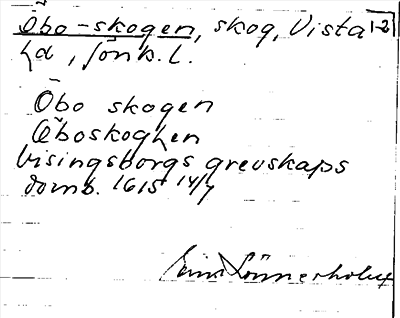 Öbo-skogen, skog, Vista 1-2
hd, Jönk. l.
Öbo skogen
Öboskoghen
Visingsborgs grevskaps
domb. 1615 14/7
Lönnerholm